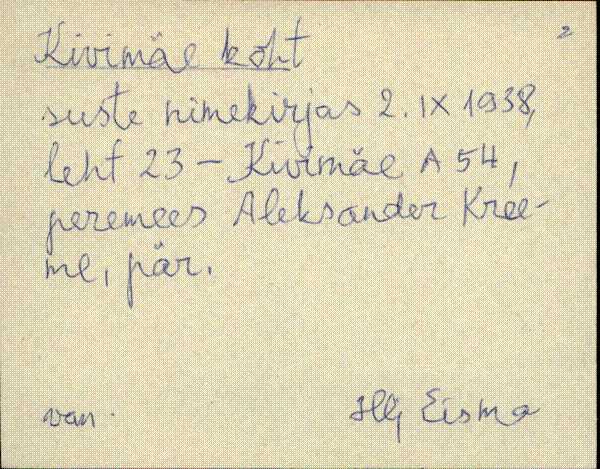 2
Kivimäe koht
suste nimekirjas 2. IX 1938,
leht 23 – Kivimäe A 54,
peremees Aleksander Kree-
me, pär.
van.
Eisma